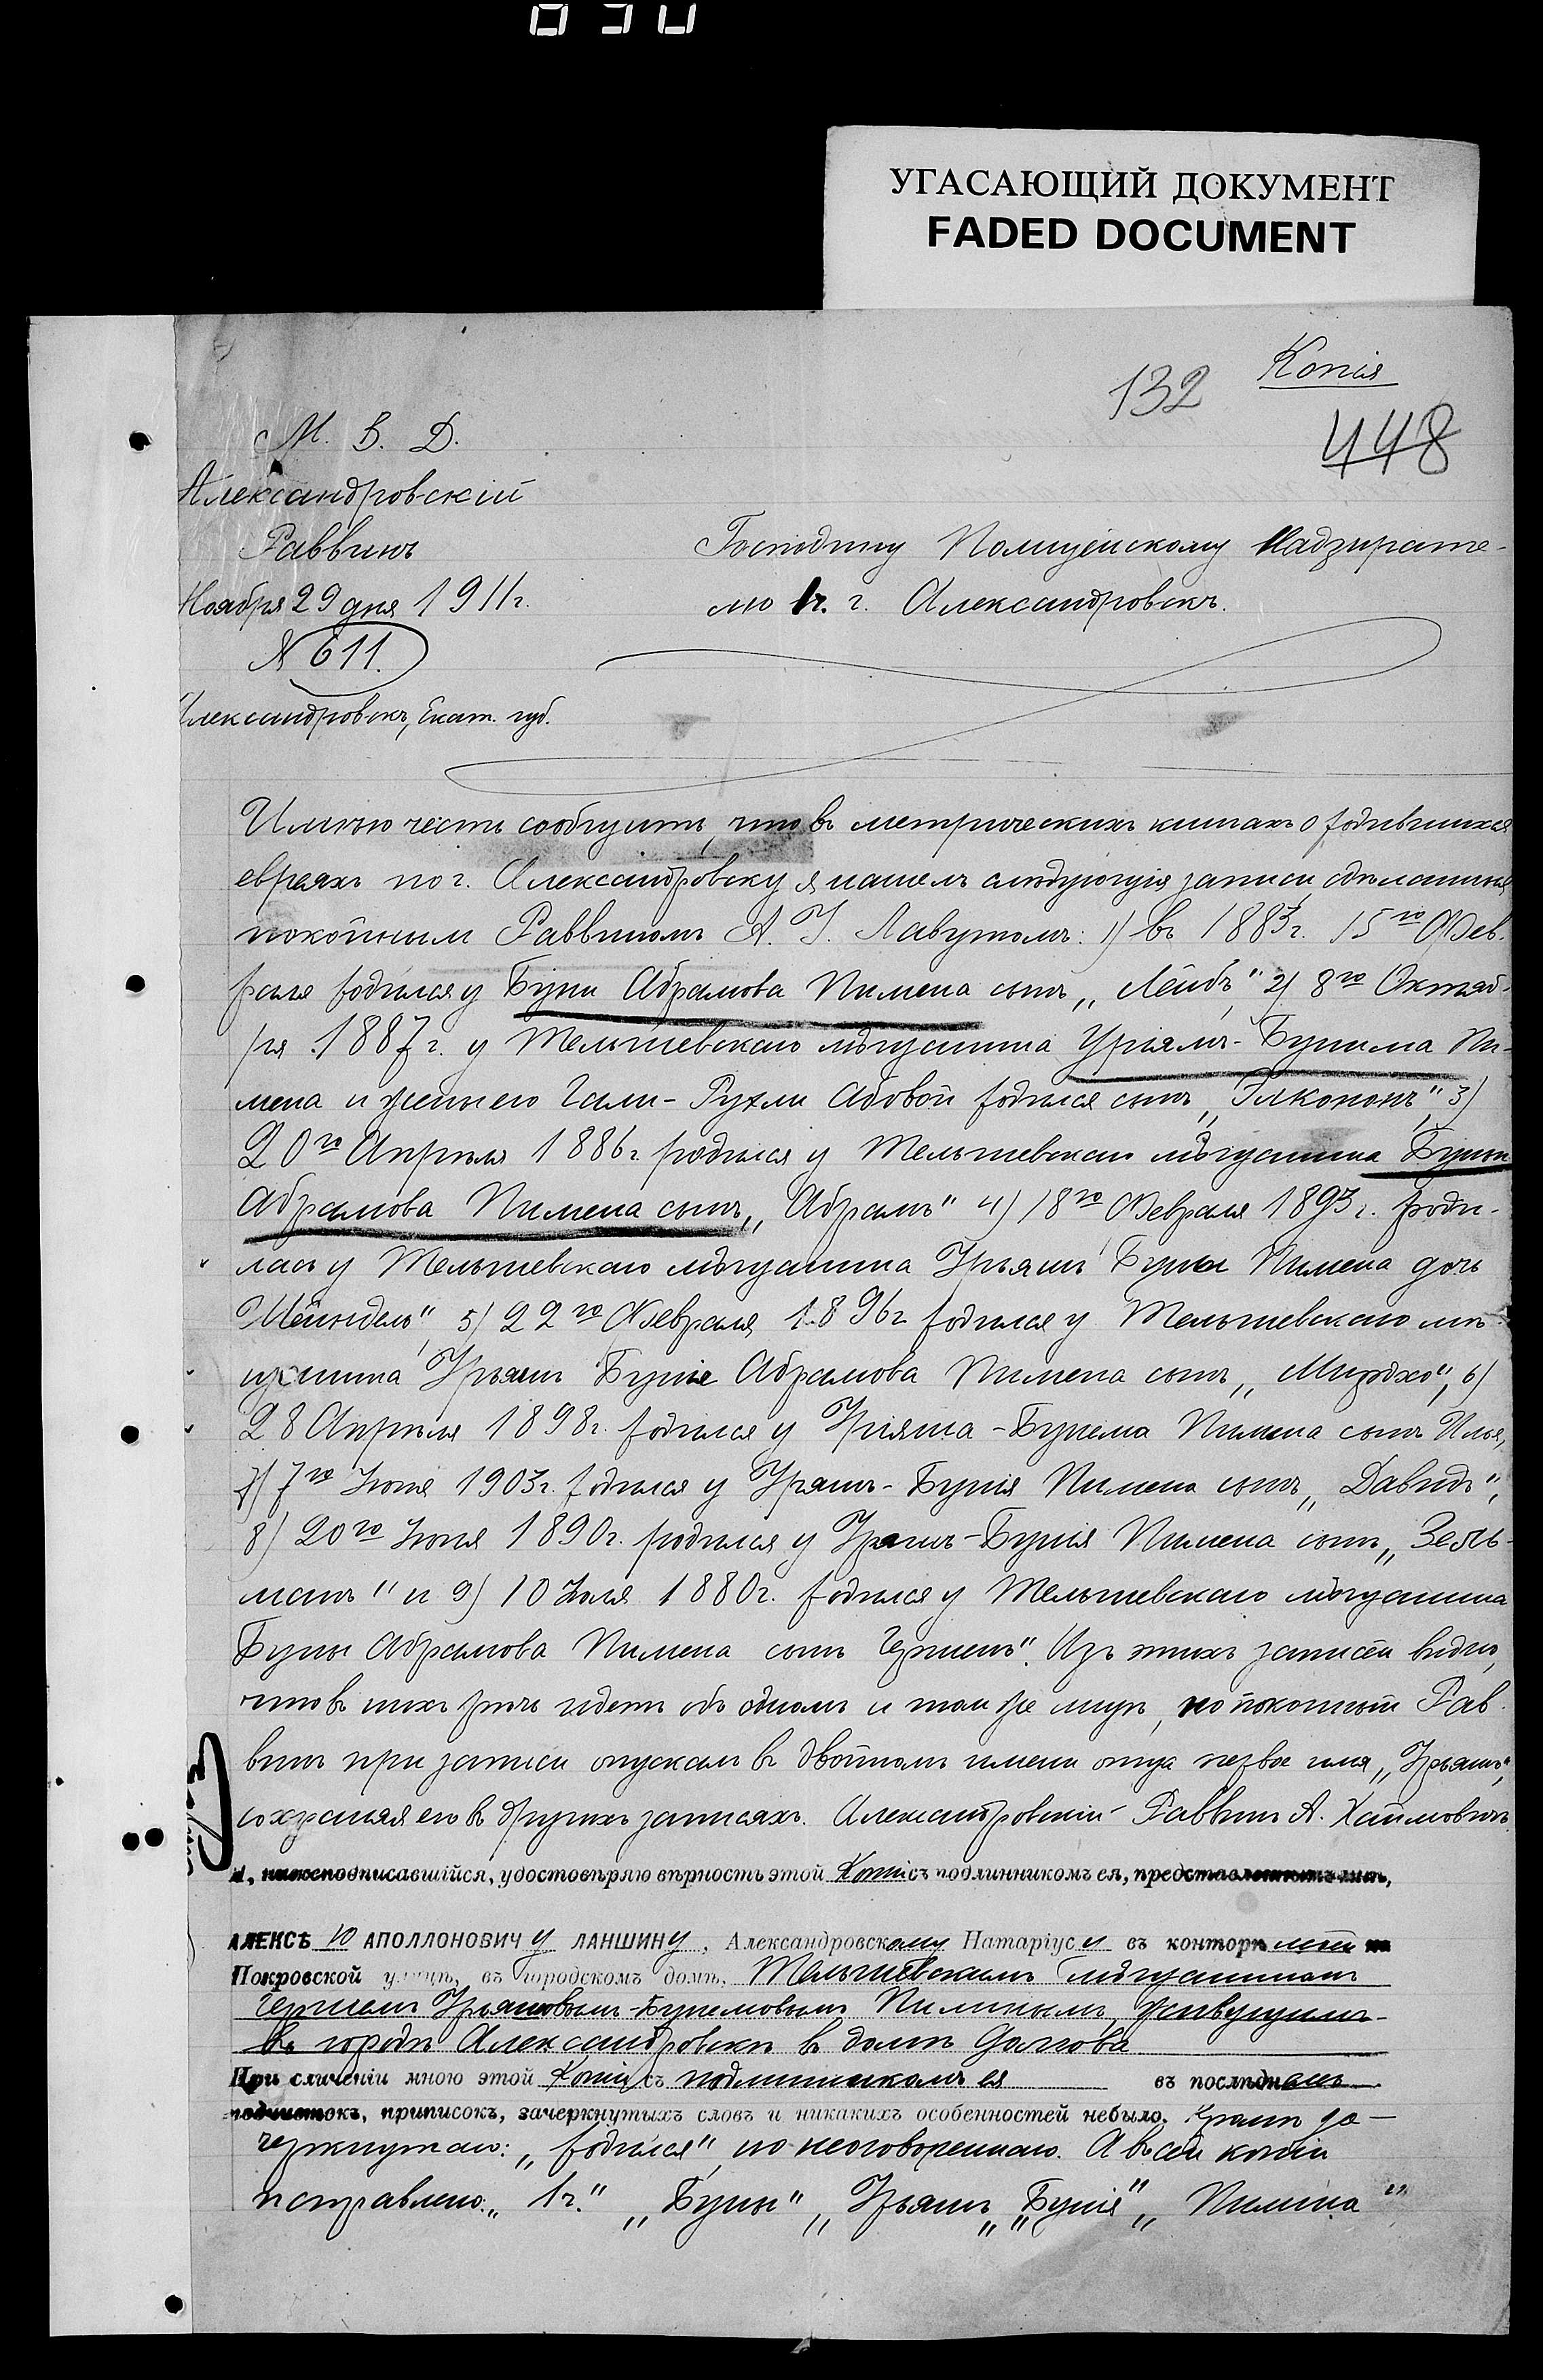 УГАСАЮЩИЙ ДОКУМЕНТ
FADED DOCUMENT
Копія
132
448
М. В. Д.
Александровскій
Раввинъ
Ноября 29 дня 1911 г.
№ 611.
Александровскъ, Екат. губ.
Господину Полицейскому Надзирате-
лю 1 ч. г. Александровскъ.
Имѣю честь сообщить, что въ метрическихъ книгахъ о родившихся
евреяхъ по г. Александровску я нашелъ слѣдующія записи сдѣланныя
покойнымъ Раввиномъ А. І. Лавутомъ: 1) въ 1883 г. 15го Фев-
раля родился у Буни Абрамова Пимена сынъ „Лейбъ“ 2) 8го Октяб-
ря 1887 г. у Тельшевскаго мѣщанина Уріяшъ-Бунима Пи-
мена и жены его Рухли родился сынъ „Элкононъ“, 3)
20го Апрѣля 1886 г. родился у Тельшевскаго мѣщанина Буни
Абрамова Пимена сынъ „Абрамъ“ 4) 18го Февраля 1893 г. роди-
лась у Тельшевскаго мѣщанина Урьяшъ Буни Пимена дочь
„Шейндель“, 5) 22го Февраля 1896 г. родился у Тельшевскаго мѣ-
щанина Урьяшъ Буніе Абрамова Пимена сынъ 6)
28 Апрѣля 1898 г. родился у Уріяша-Бунема Пимена сынъ Илья,
7) 7го Іюня 1903 г. родился у Уряшъ-Бунія Пимена сынъ „Давидъ“,
8) 20го Іюня 1890 г. родился у Уряшъ-Бунія Пимена сынъ „Зель-
манъ“ и 9) 10 Іюля 1880 г. родился у Тельшевскаго мѣщанина
Буни Абрамова Пимена сынъ „Герценъ“. Изъ этихъ записей видно,
что въ нихъ рѣчь идетъ объ одномъ и томъ же лицѣ, но покойный Рав-
винъ при записи опускалъ въ двойномъ имени отца первое имя „Урьяшъ“,
сохраняя его въ другихъ записяхъ. Александровскій Раввинъ А. Хаимовичъ
Я, нижеподписавшійся, удостовѣряю вѣрность этой Копіи съ подлинникомъ ея, представленнымъ мнѣ,
АЛЕКСѢЮ АПОЛЛОНОВИЧУ ЛАНШИНУ, Александровскому Натаріусу въ конторѣ моей на
Покровской улицѣ, въ Городскомъ домѣ, Тельшевскимъ мѣщаниномъ
Герценомъ Урьяшовымъ-Бунемовымъ Пименымъ, живущимъ
въ городѣ Александровскѣ въ домѣ Долгова
При сличеніи мною этой Копіи съ подлинникомъ ея въ послѣднемъ
подчистокъ, приписокъ, зачеркнутыхъ словъ и никакихъ особенностей небыло. Кромѣ до-
черкнутаго: „родился“, но неоговореннаго. А въ сей копіи
исправлено: „1 ч.“ „Буни“ „Урьяшъ“ „Бунія“ „Пимена“